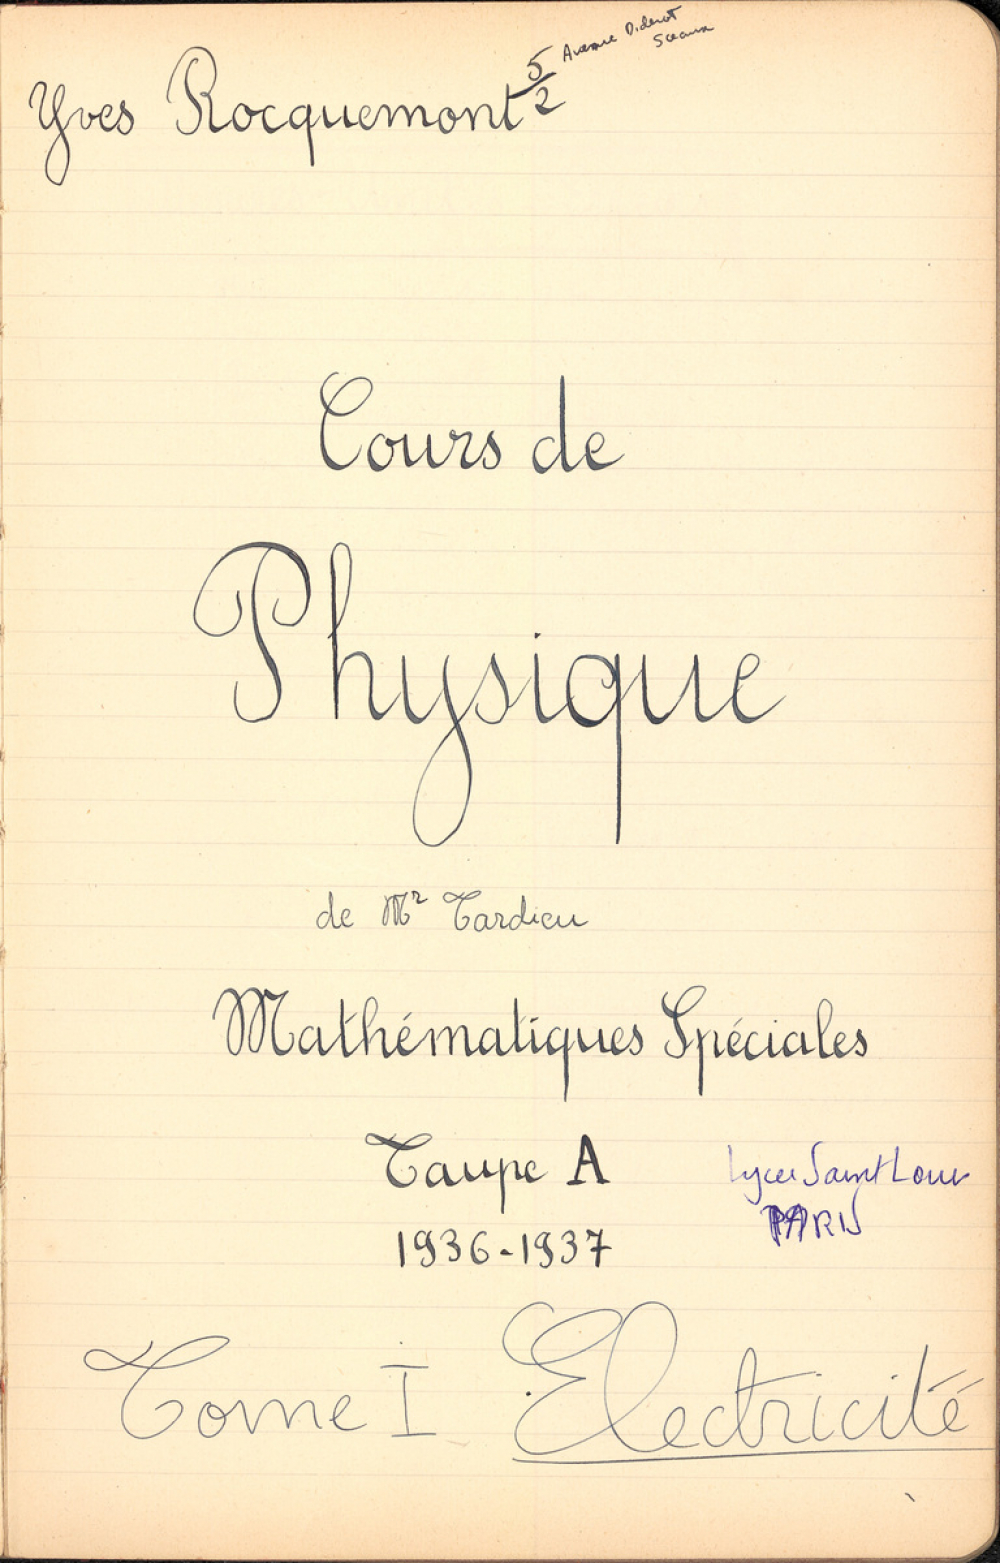 Yves Rocquemont 5/2 Avenue Diderot
Sceaux
Cours de
Physique
de Mr Tardieu
Mathématiques Spéciales
Taupe A
Lycée Saint Louis
PARIS
1936-1937
Tome I Electricité